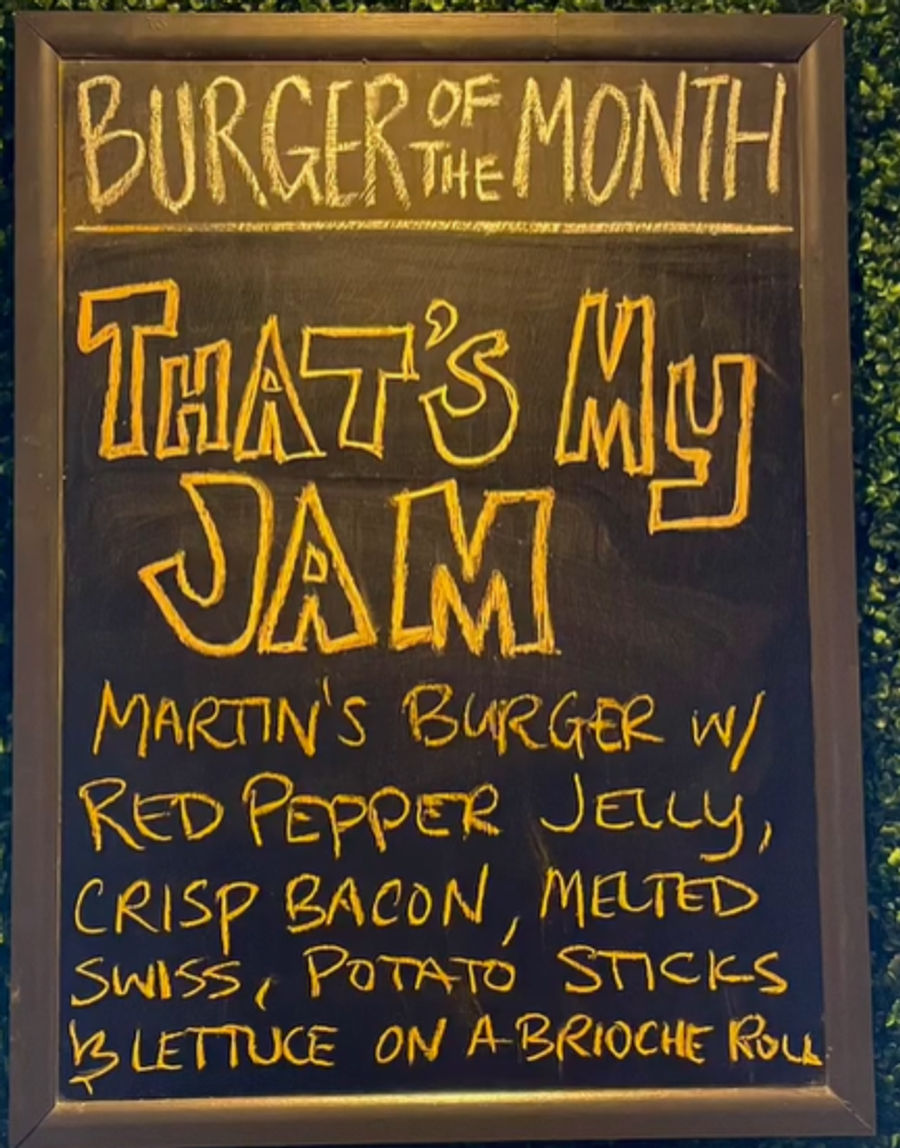 BURGER OF THE MONTH
THAT'S MY
JAM
MARTIN'S BURGER W/
RED PEPPER JELLY,
CRISP BACON, MELTED
SWISS, POTATO STICKS
& LETTUCE ON A BRIOCHE ROLL